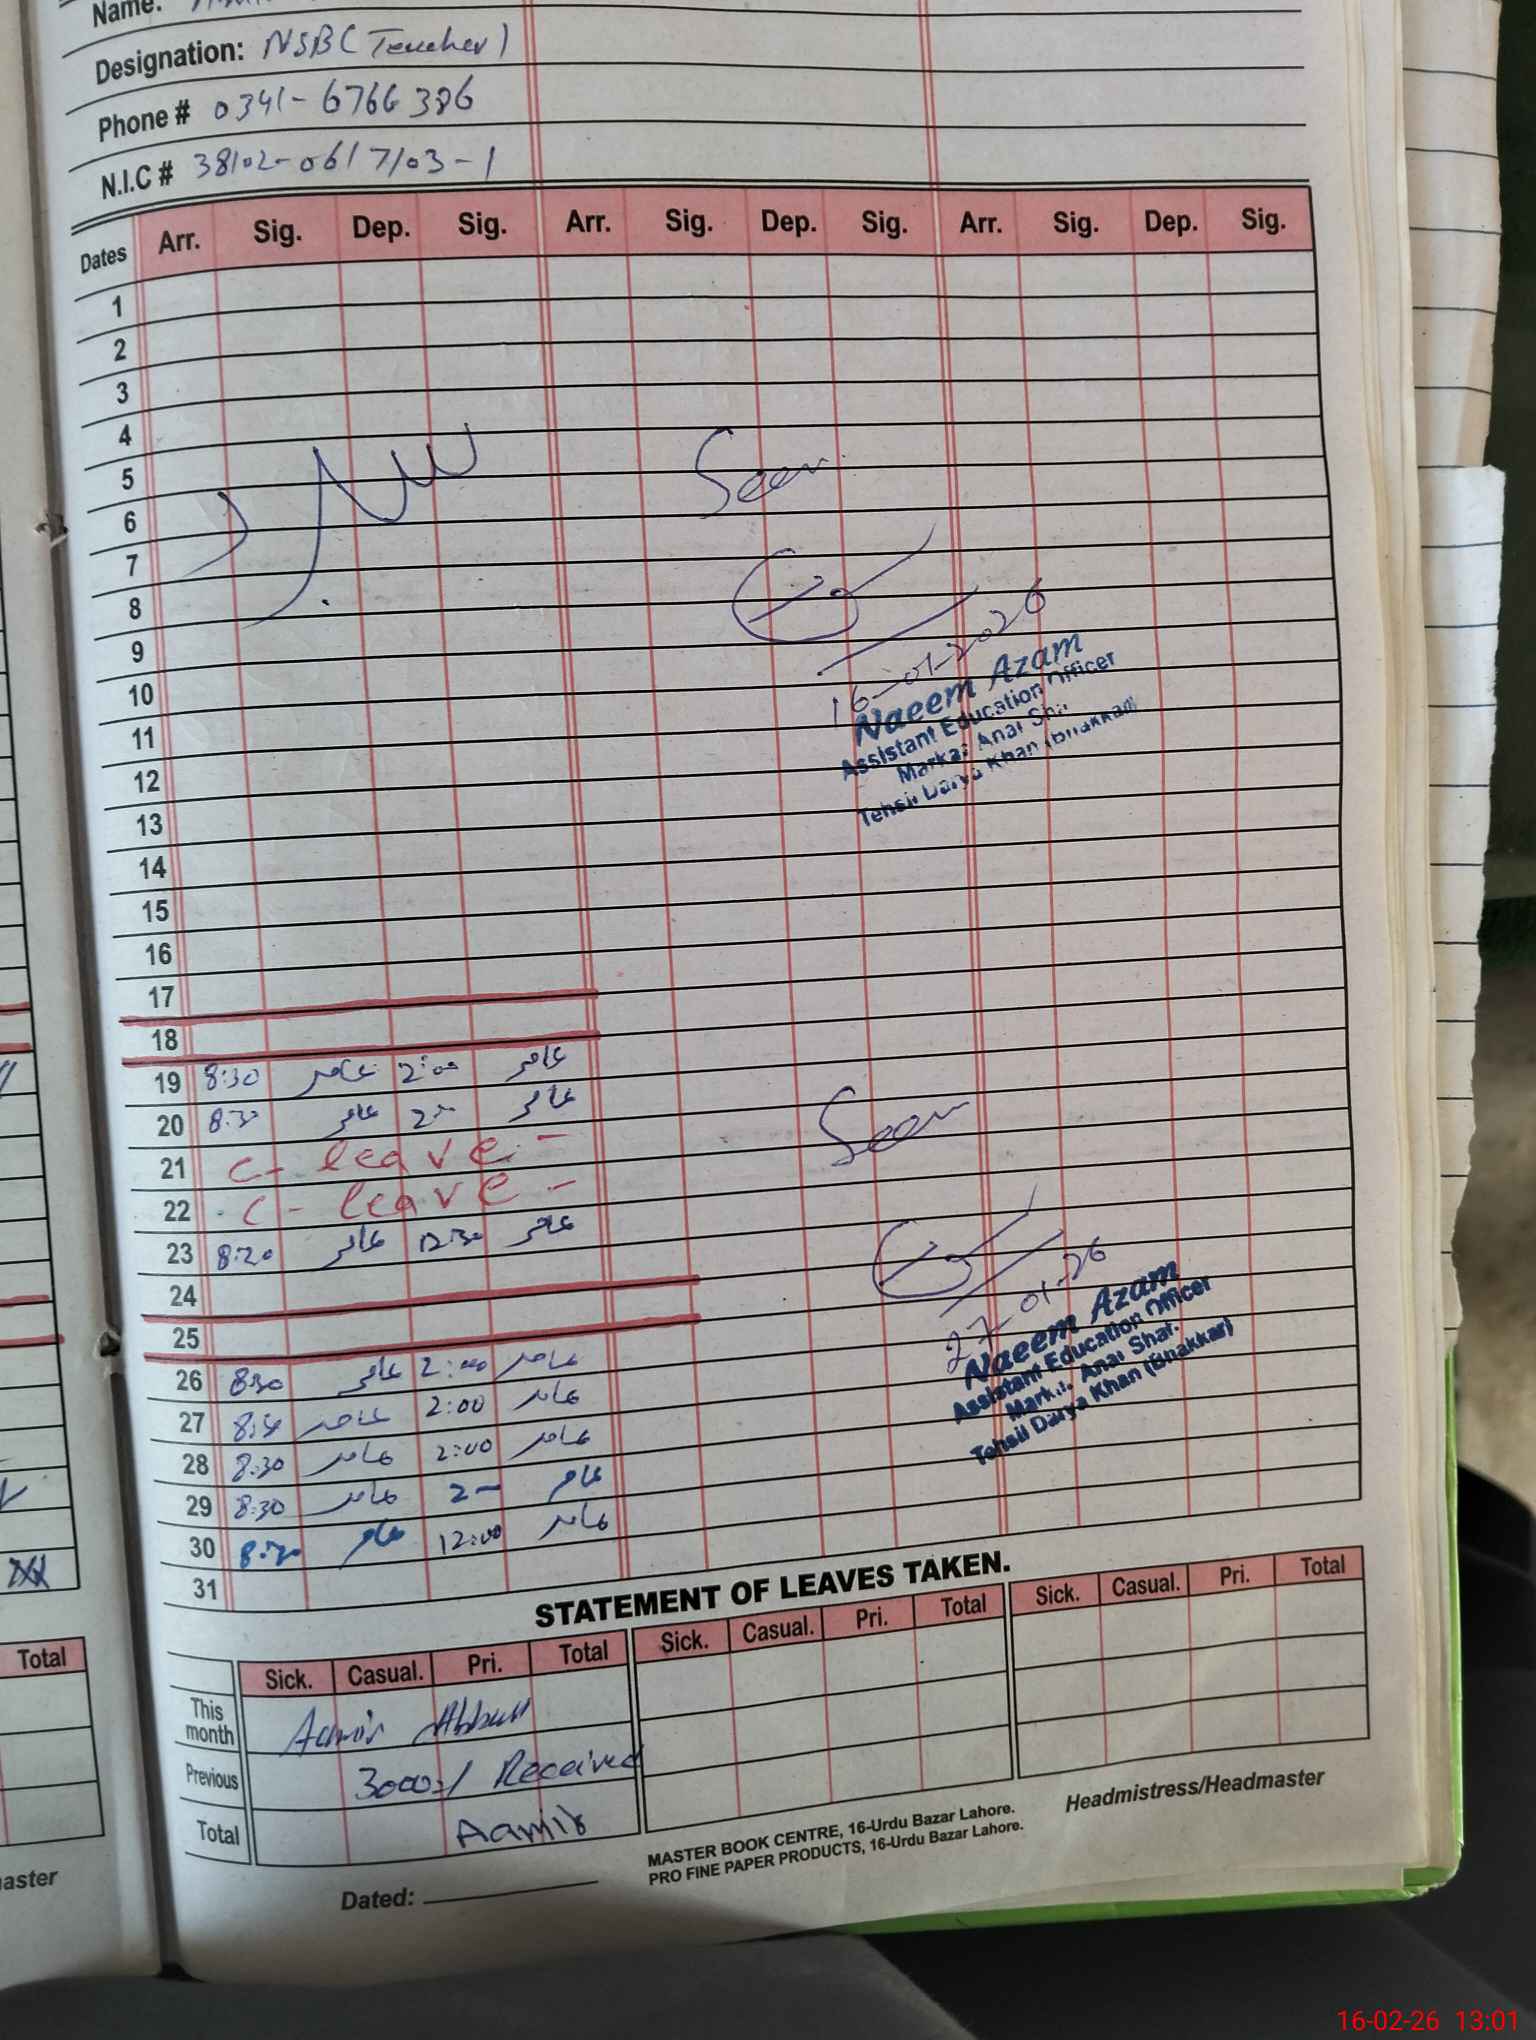 Name:
Designation: NSBC Teacher)
Phone # 0341-6766386
N.I.C # 38102-0617103-1
Dates Arr. Sig. Dep. Sig. Arr. Sig. Dep. Sig. Arr. Sig. Dep. Sig.
1
2
3
4
5 Seen
6
7
8
9 16-01-2026
10 Naeem Azam
11 Assistant Education Officer
12 Markaz
13 Tehsil Darya Khan (Bhakkar)
14
15
16
17
18
19 8:30 عامر 2:00 عامر
20 8:30 عامر 2- عامر
21 C- leave - Seen
22 C- leave -
23 8:20 عامر 12:30 عامر
24
25 27-01-26
26 8:30 عامر 2:00 عامر Naeem Azam
27 عامر 2:00 عامر Assistant Education Officer
28 8:30 عامر 2:00 عامر
29 8:30 عامر 2- عامر Tehsil Darya Khan (Bhakkar)
30 8:30 عامر 12:00 عامر
31
STATEMENT OF LEAVES TAKEN.
Sick. Casual. Pri. Total Sick. Casual. Pri. Total Sick. Casual. Pri. Total
This month Aamir Abbas
Previous 3000/ Received
Total Aamir
MASTER BOOK CENTRE, 16-Urdu Bazar Lahore.
PRO FINE PAPER PRODUCTS, 16-Urdu Bazar Lahore.
Headmistress/Headmaster
Dated:
Total
16-02-26 13:01